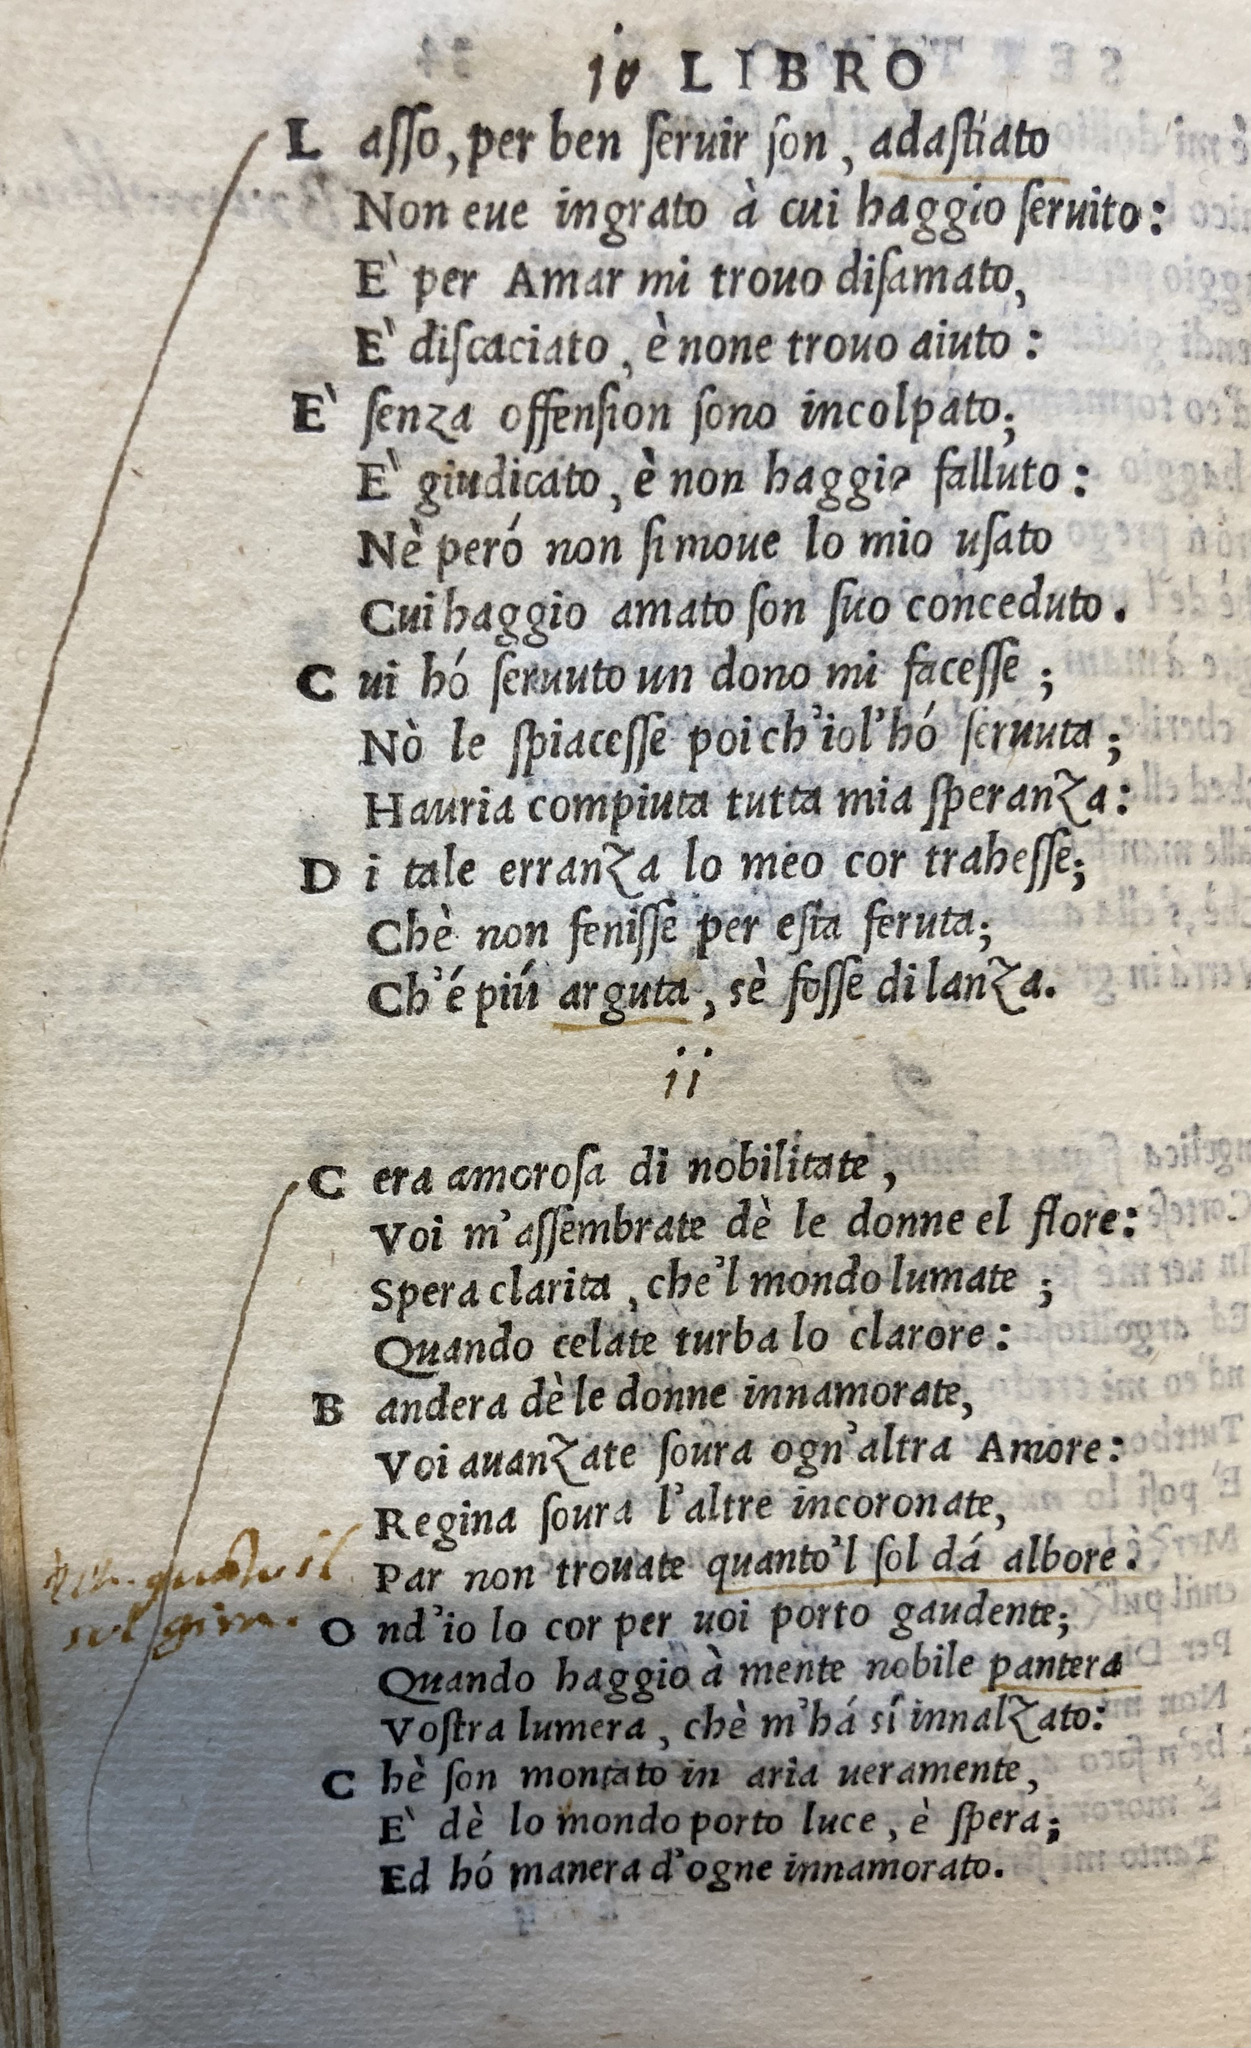 io LIBRO
Lasso, per ben ſeruir ſon, adaſtiato
Non eue ingrato à cui haggio ſeruito:
E' per Amar mi trouo diſamato,
E' diſcaciato, è none trouo aiuto:
E' ſenza offenſion ſono incolpato;
E' giudicato, è non haggio falluto:
Nè peró non ſi moue lo mio uſato
Cui haggio amato ſon ſuo conceduto.
Cui hó ſeruuto un dono mi faceſſe;
Nò le ſpiaceſſe poi ch'iol'hó ſeruuta;
Hauria compiuta tutta mia ſperanza:
Di tale erranza lo meo cor traheſſe;
Chè non feniſſe per eſta feruta;
Ch'é piú arguta, sè foſſe di lanza.
ii
Cera amoroſa di nobilitate,
Voi m'aſſembrate dè le donne el flore:
Spera clarita, che'l mondo lumate;
Quando celate turba lo clarore:
Bandera dè le donne innamorate,
Voi auanzate ſoura ogn'altra Amore:
Regina ſoura l'altre incoronate,
Par non trouate quanto'l ſol dá albore:
quāto il
sol gira.
Ond'io lo cor per uoi porto gaudente;
Quando haggio à mente nobile pantera
Voſtra lumera, chè m'há sí innalzato:
Chè ſon montato in aria ueramente,
E' dè lo mondo porto luce, è ſpera;
Ed hó manera d'ogne innamorato.